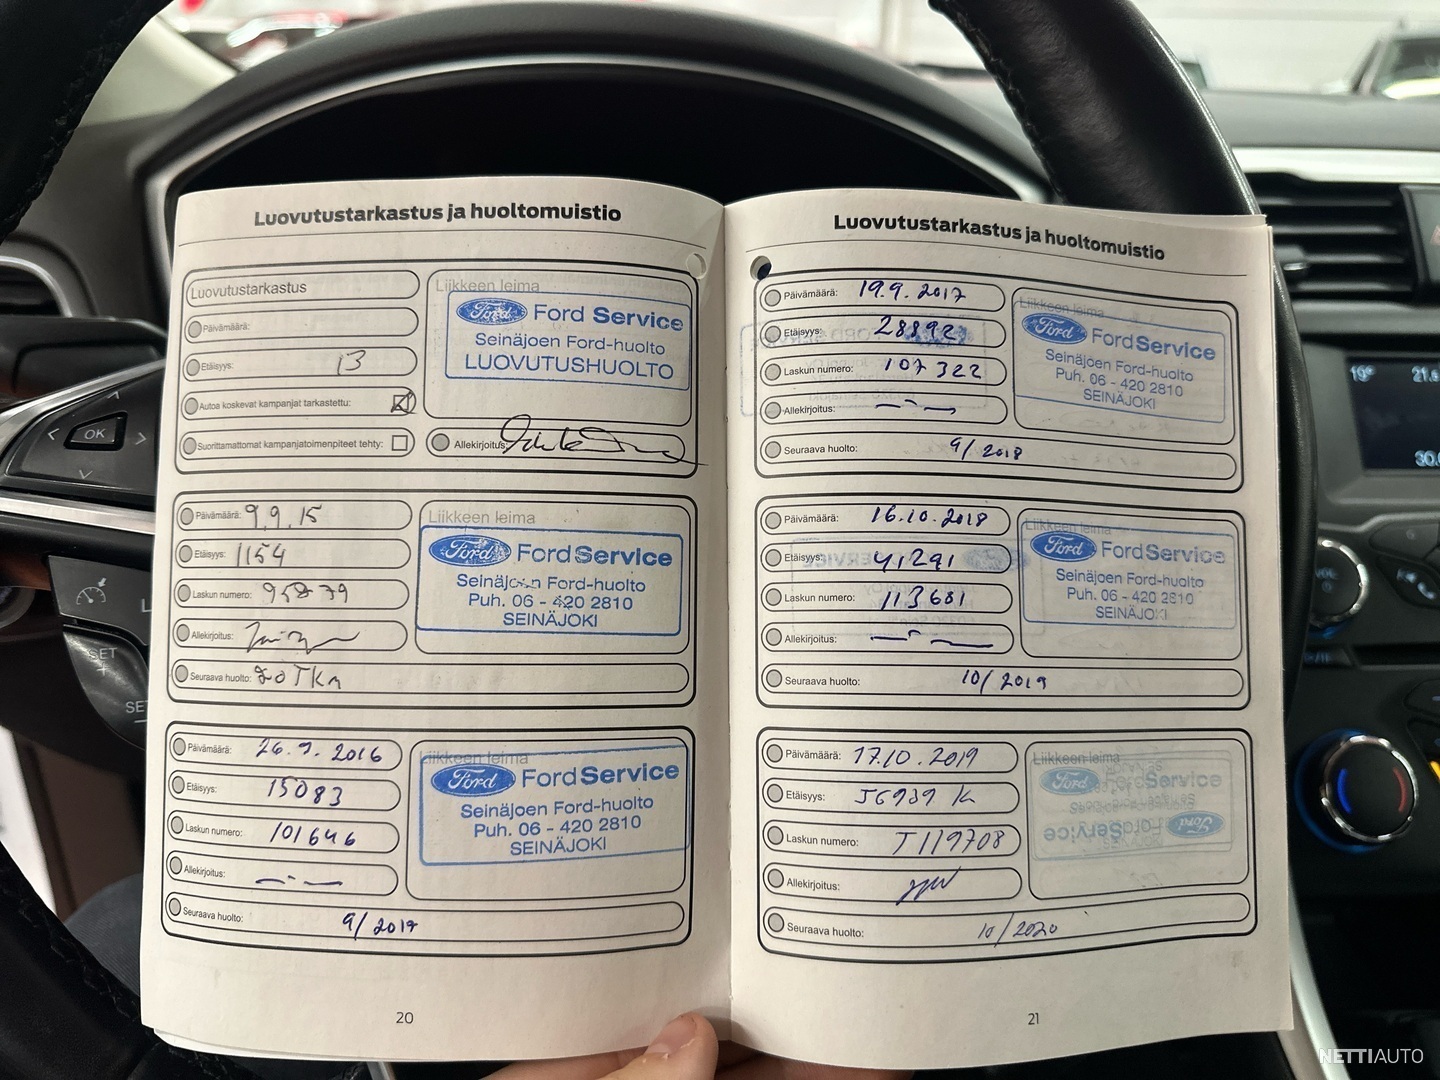 Luovutustarkastus ja huoltomuistio
Luovutustarkastus
Päivämäärä:
Etäisyys: 13
Autoa koskevat kampanjat tarkastettu:
Suorittamattomat kampanjatoimenpiteet tehty:
Liikkeen leima
Ford Ford Service
Seinäjoen Ford-huolto
LUOVUTUSHUOLTO
Allekirjoitus:
Päivämäärä: 9.9.15
Etäisyys: 1154
Laskun numero:
Allekirjoitus:
Seuraava huolto: 20TKm
Liikkeen leima
Ford FordService
Seinäjoen Ford-huolto
Puh. 06 - 420 2810
SEINÄJOKI
Päivämäärä: 26.9.2016
Etäisyys: 15083
Laskun numero: 101646
Allekirjoitus:
Seuraava huolto: 9/2017
Liikkeen leima
Ford FordService
Seinäjoen Ford-huolto
Puh. 06 - 420 2810
SEINÄJOKI
20
Luovutustarkastus ja huoltomuistio
Päivämäärä: 19.9.2017
Etäisyys: 28892
Laskun numero: 107322
Allekirjoitus:
Seuraava huolto: 9/2018
Liikkeen leima
Ford FordService
Seinäjoen Ford-huolto
Puh. 06 - 420 2810
SEINÄJOKI
Päivämäärä: 16.10.2018
Etäisyys: 41291
Laskun numero: 113681
Allekirjoitus:
Seuraava huolto: 10/2019
Liikkeen leima
Ford FordService
Seinäjoen Ford-huolto
Puh. 06 - 420 2810
SEINÄJOKI
Päivämäärä: 17.10.2019
Etäisyys: 56939 K
Laskun numero: T119708
Allekirjoitus:
Seuraava huolto: 10/2020
Liikkeen leima
Ford FordService
Ford FordService
21
OK
SET
+
19°
VOL
NETTIAUTO